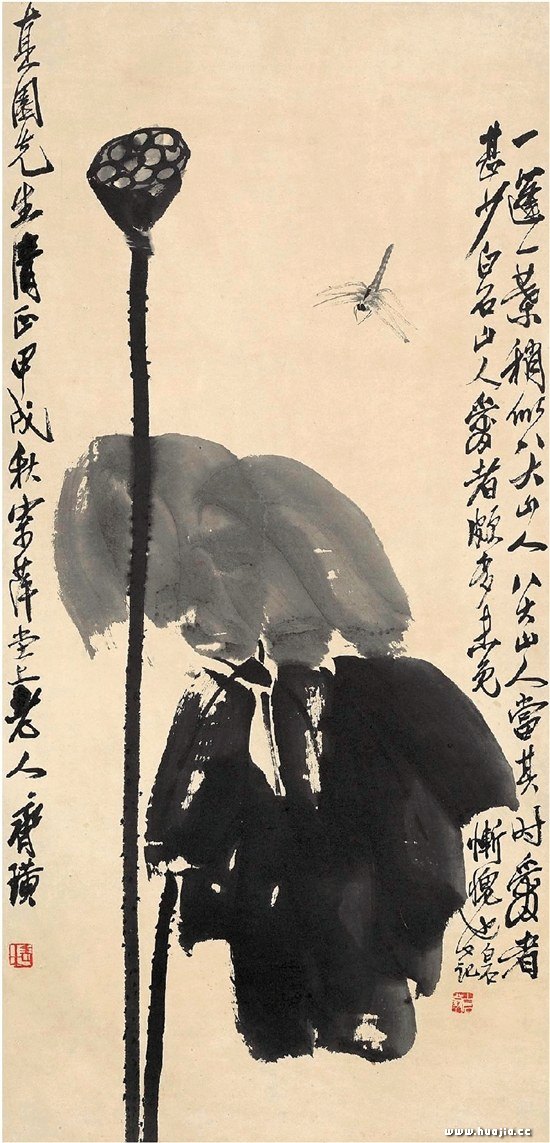 一蓬一葉稍似八大山人八大山人當其時愛者
甚少白石山人愛者頗多未免慚愧也白石又記
園先生清正甲戌秋寄萍堂上老人齊璜
www.huajia.cc